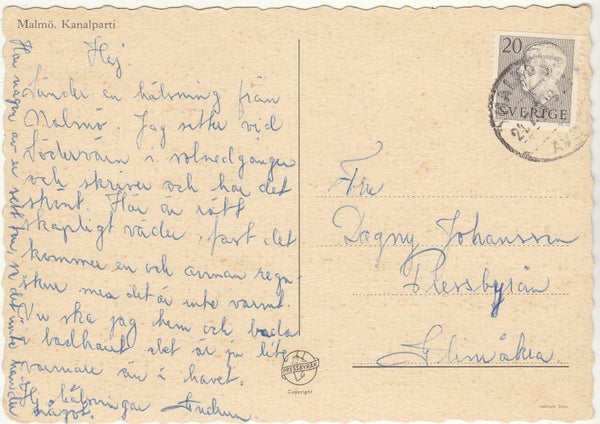 Malmö. Kanalparti
Hej.
Sänder en hälsning från
Malmö. Jag sitter vid
Södervärn i solnedgången
och skriver och har det
skönt. Här är rätt
skapligt väder, fast det
kommer en och annan regn-
skur men det är inte varmt
Nu ska jag hem och bada
i badhuset det är ju lite
varmare än i havet.
Hj hälsningar Gudrun.
Har några av er sett
något.
20
SVERIGE
MALMÖ
Fru
Dagny Johansson
Plessbyrån
Glimåkra.
PRESSBYRÅN
Copyright